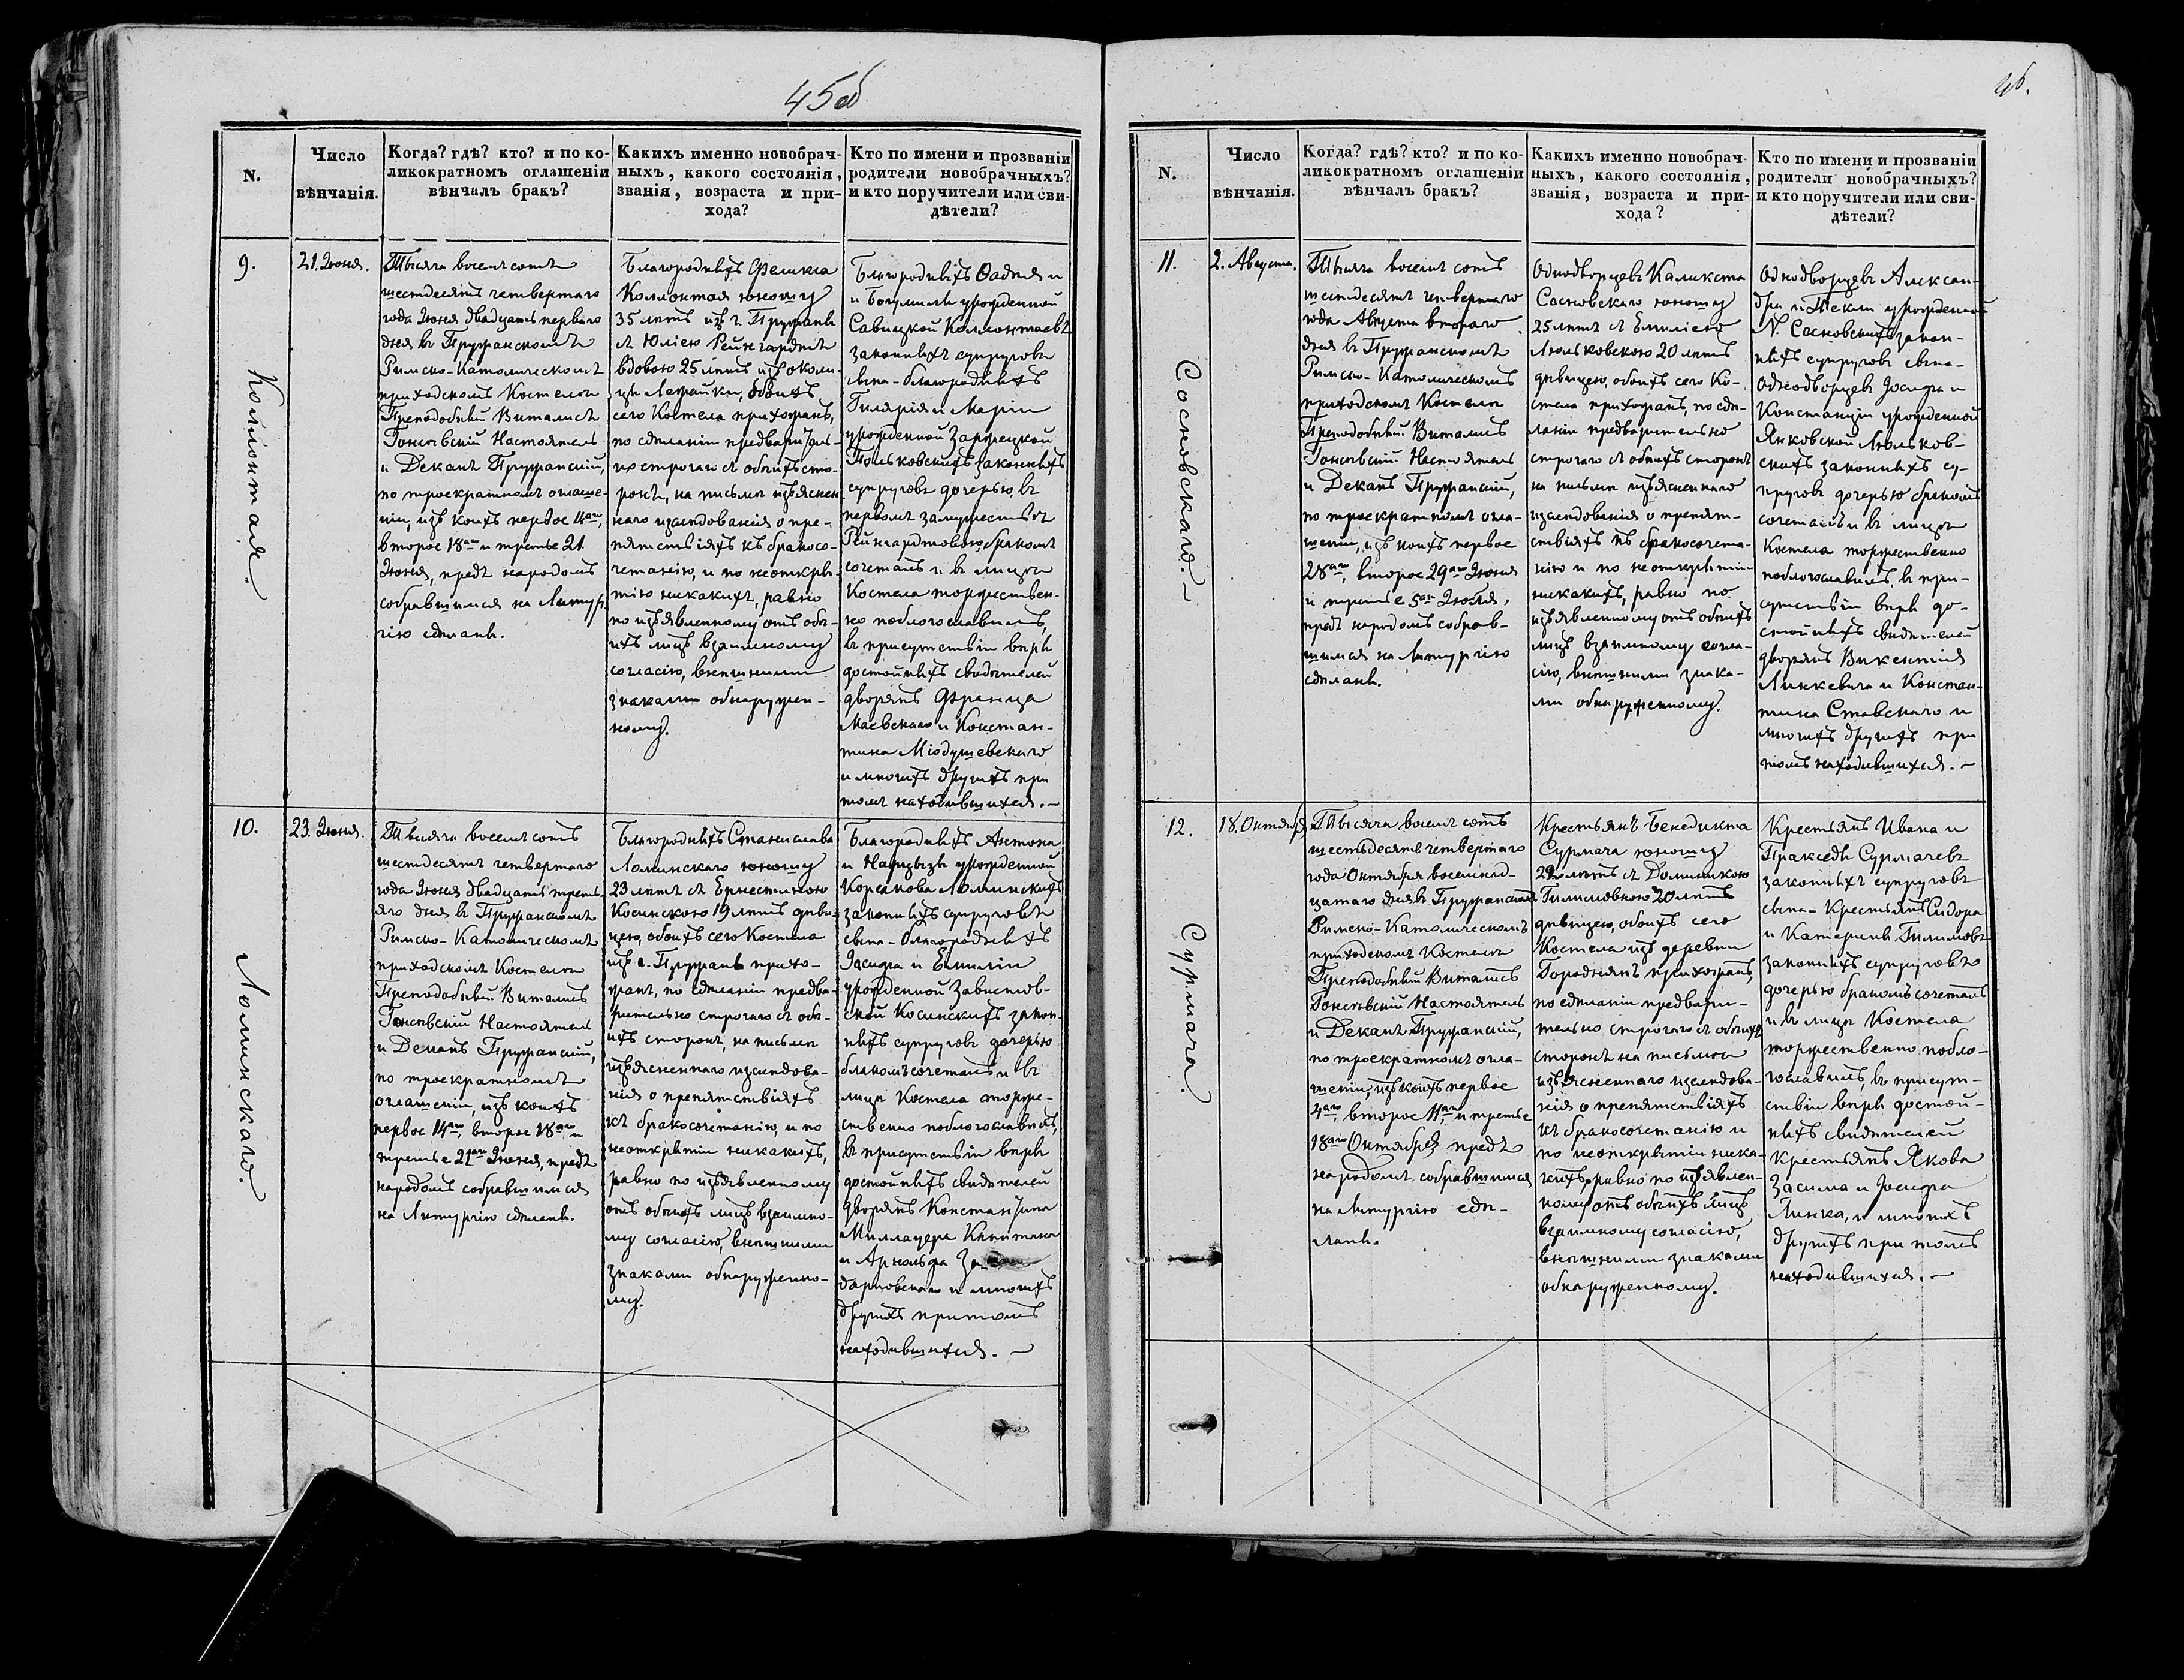 45об
N.
Число
вѣнчанія.
Когда? гдѣ? кто? и по ко-
ликократномъ оглашеніи
вѣнчалъ бракъ?
Какихъ именно новобрач-
ныхъ, какого состоянія,
званія, возраста и при-
хода?
Кто по имени и прозваніи
родители новобрачныхъ?
и кто поручители или сви-
дѣтели?
9.
Коллонтая.
21. Июня.
Тысяча восемь сотъ
шестдесятъ четвертаго
года Июня двадцать перваго
дня въ Пружанскомъ
Римско-Католическомъ
приходскомъ Костелѣ
Преподобный Виталисъ
Гонсѣвскій Настоятель
и Деканъ Пружанскій,
по троекратномъ оглаше-
ніи, изъ коихъ первое 14го,
второе 18го и третье 21
Июня, предъ народомъ
собравшимся на Литур-
гію сдѣланы.
Благородныхъ Феликса
Коллонтая юношу
35 лѣтъ изъ г. Пружанъ
съ Юліею Рейнгардтъ
вдовою 25 лѣтъ изъ околи-
цы обоихъ
сего Костела прихожанъ,
по сдѣланіи предваритель-
но строгаго съ обоихъ сто-
ронъ, на письмѣ изъяснен-
наго изслѣдованія о пре-
пятствіяхъ къ бракосо-
четанію, и по неоткры-
тію никакихъ, равно
по изъявленному отъ обо-
ихъ лицъ взаимному
согласію, внешними
знаками обнаружен-
ному.
Благородныхъ Фадея и
и Богумилы урожденной
Савицкой Коллонтаевъ
законныхъ супруговъ
сына - благородныхъ
Гилярія и Маріи
урожденной Заржецкой
Польковскихъ законныхъ
супруговъ дочерью, въ
первомъ замужествѣ
Рейнгардтовою бракомъ
сочеталъ и въ лицѣ
Костела торжествен-
но поблогославилъ,
въ присутствіи вѣры
достойныхъ свидѣтелей
дворянъ Франца
Маевскаго и Констан-
тина Міодушевскаго
и многихъ другихъ при
томъ находившихся. -
10.
Ломинскаго.
23. Июня.
Тысяча восемь сотъ
шестдесятъ четвертаго
года Июня двадцать треть-
яго дня въ Пружанскомъ
Римско-Католическомъ
приходскомъ Костелѣ
Преподобный Виталисъ
Гонсѣвскій Настоятель
и Деканъ Пружанскій,
по троекратномъ
оглашеніи, изъ коихъ
первое 14го, второе 18го, и
третье 21го Июня, предъ
народомъ собравшимся
на Литургію сдѣланы.
Благородныхъ Станислава
Ломинскаго юношу
23 лѣтъ съ Ернестиною
Косинскою 19 лѣтъ дѣви-
цею, обоихъ сего Костела
изъ г. Пружанъ прихо-
жанъ, по сдѣланіи предва-
рительно строгаго съ обо-
ихъ сторонъ, на письмѣ
изъясненнаго изслѣдова-
нія о препятствіяхъ
къ бракосочетанію, и по
неоткрытіи никакихъ,
равно по изъявленному
отъ обоихъ лицъ взаимно-
му согласію, внешними
знаками обнаруженно-
му.
Благородныхъ Антона
и Нарцызы урожденной
Корсакова Ломинскихъ
законныхъ супруговъ
сына - благородныхъ
Іосифа и Емиліи
урожденной Завистов-
ской Косинскихъ закон-
ныхъ супруговъ дочерью
бракомъ сочеталъ и въ
лицѣ Костела торже-
ственно поблогославилъ,
въ присутствіи вѣры
достойныхъ свидѣтелей
дворянъ Константина
Миллауера Капитана
и Арнольфа
и многихъ
другихъ притомъ
находившихся. -
46.
N.
Число
вѣнчанія.
Когда? гдѣ? кто? и по ко-
ликократномъ оглашеніи
вѣнчалъ бракъ?
Какихъ именно новобрач-
ныхъ, какого состоянія,
званія, возраста и при-
хода?
Кто по имени и прозваніи
родители новобрачныхъ?
и кто поручители или сви-
дѣтели?
11.
Сосновскаго.
2. Августа.
Тысяча восемь сотъ
шестдесятъ четвертаго
года Августа втораго
дня въ Пружанскомъ
Римско-Католическомъ
приходскомъ Костелѣ
Преподобный Виталисъ
Гонсѣвскій Настоятель
и Деканъ Пружанскій,
по троекратномъ огла-
шеніи, изъ коихъ первое
28го, второе 29го Июня
и третье 5го Июля,
предъ народомъ собрав-
шимся на Литургію
сдѣланы.
Однодворцевъ Каликста
Сосновскаго юношу
25 лѣтъ съ Емиліею
Люльковскою 20 лѣтъ
дѣвицею, обоихъ сего Ко-
стела прихожанъ, по сдѣ-
ланіи предварительно
строгаго съ обоихъ сторонъ
на письмѣ изъясненнаго
изслѣдованія о препят-
ствіяхъ къ бракосочета-
нію и по неоткрытіи
никакихъ, равно по
изъявленному отъ обоихъ
лицъ взаимному согла-
сію, внешними знака-
ми обнаруженному.
Однодворцевъ Алексан-
дра и Теклы урожденной
N. Сосновскихъ закон-
ныхъ супруговъ сына -
Однодворцевъ Іосифа и
Констанціи урожденной
Янковской Люльков-
скихъ законныхъ су-
пруговъ дочерью бракомъ
сочеталъ и въ лицѣ
Костела торжественно
поблогославилъ, въ при-
сутствіи вѣры до-
стойныхъ свидѣтелей
дворянъ Викентія
Линкевича и Констан-
тина Ставскаго и
многихъ другихъ при
томъ находившихся. -
12.
Сурмача.
18. Октября
Тысяча восемь сотъ
шестьдесятъ четвертаго
года Октября восемнад-
цатаго дня въ Пружанскомъ
Римско-Католическомъ
приходскомъ Костелѣ
Преподобный Виталисъ
Гонсѣвскій Настоятель
и Деканъ Пружанскій,
по троекратномъ огла-
шеніи, изъ коихъ первое
4го, второе 11го, и третье
18го Октября предъ
народомъ собравшимся
на Литургію сдѣ-
ланы.
Крестьянъ Бенедикта
Сурмача юношу
лѣтъ съ Доминикою
Гилимовною 20 лѣтъ
дѣвицею, обоихъ сего
Костела изъ деревни
Городнянъ прихожанъ,
по сдѣланіи предвари-
тельно строгаго съ обоихъ
сторонъ на письмѣ
изъясненнаго изслѣдова-
нія о препятствіяхъ
къ бракосочетанію и
по неоткрытіи ника-
кихъ, равно по изъявлен-
ному отъ обоихъ лицъ
взаимному согласію,
внешними знаками
обнаруженному.
Крестьянъ Ивана и
Пракседы Сурмачевъ
законныхъ супруговъ
сына - Крестьянъ Сидора
и Катерины Гилимовъ
законныхъ супруговъ
дочерью бракомъ сочеталъ
и въ лицѣ Костела
торжественно побло-
гославилъ, въ присут-
ствіи вѣры достой-
ныхъ свидѣтелей
крестьянъ Якова
Засима и Іосифа
Линка, и многихъ
другихъ при томъ
находившихся. -